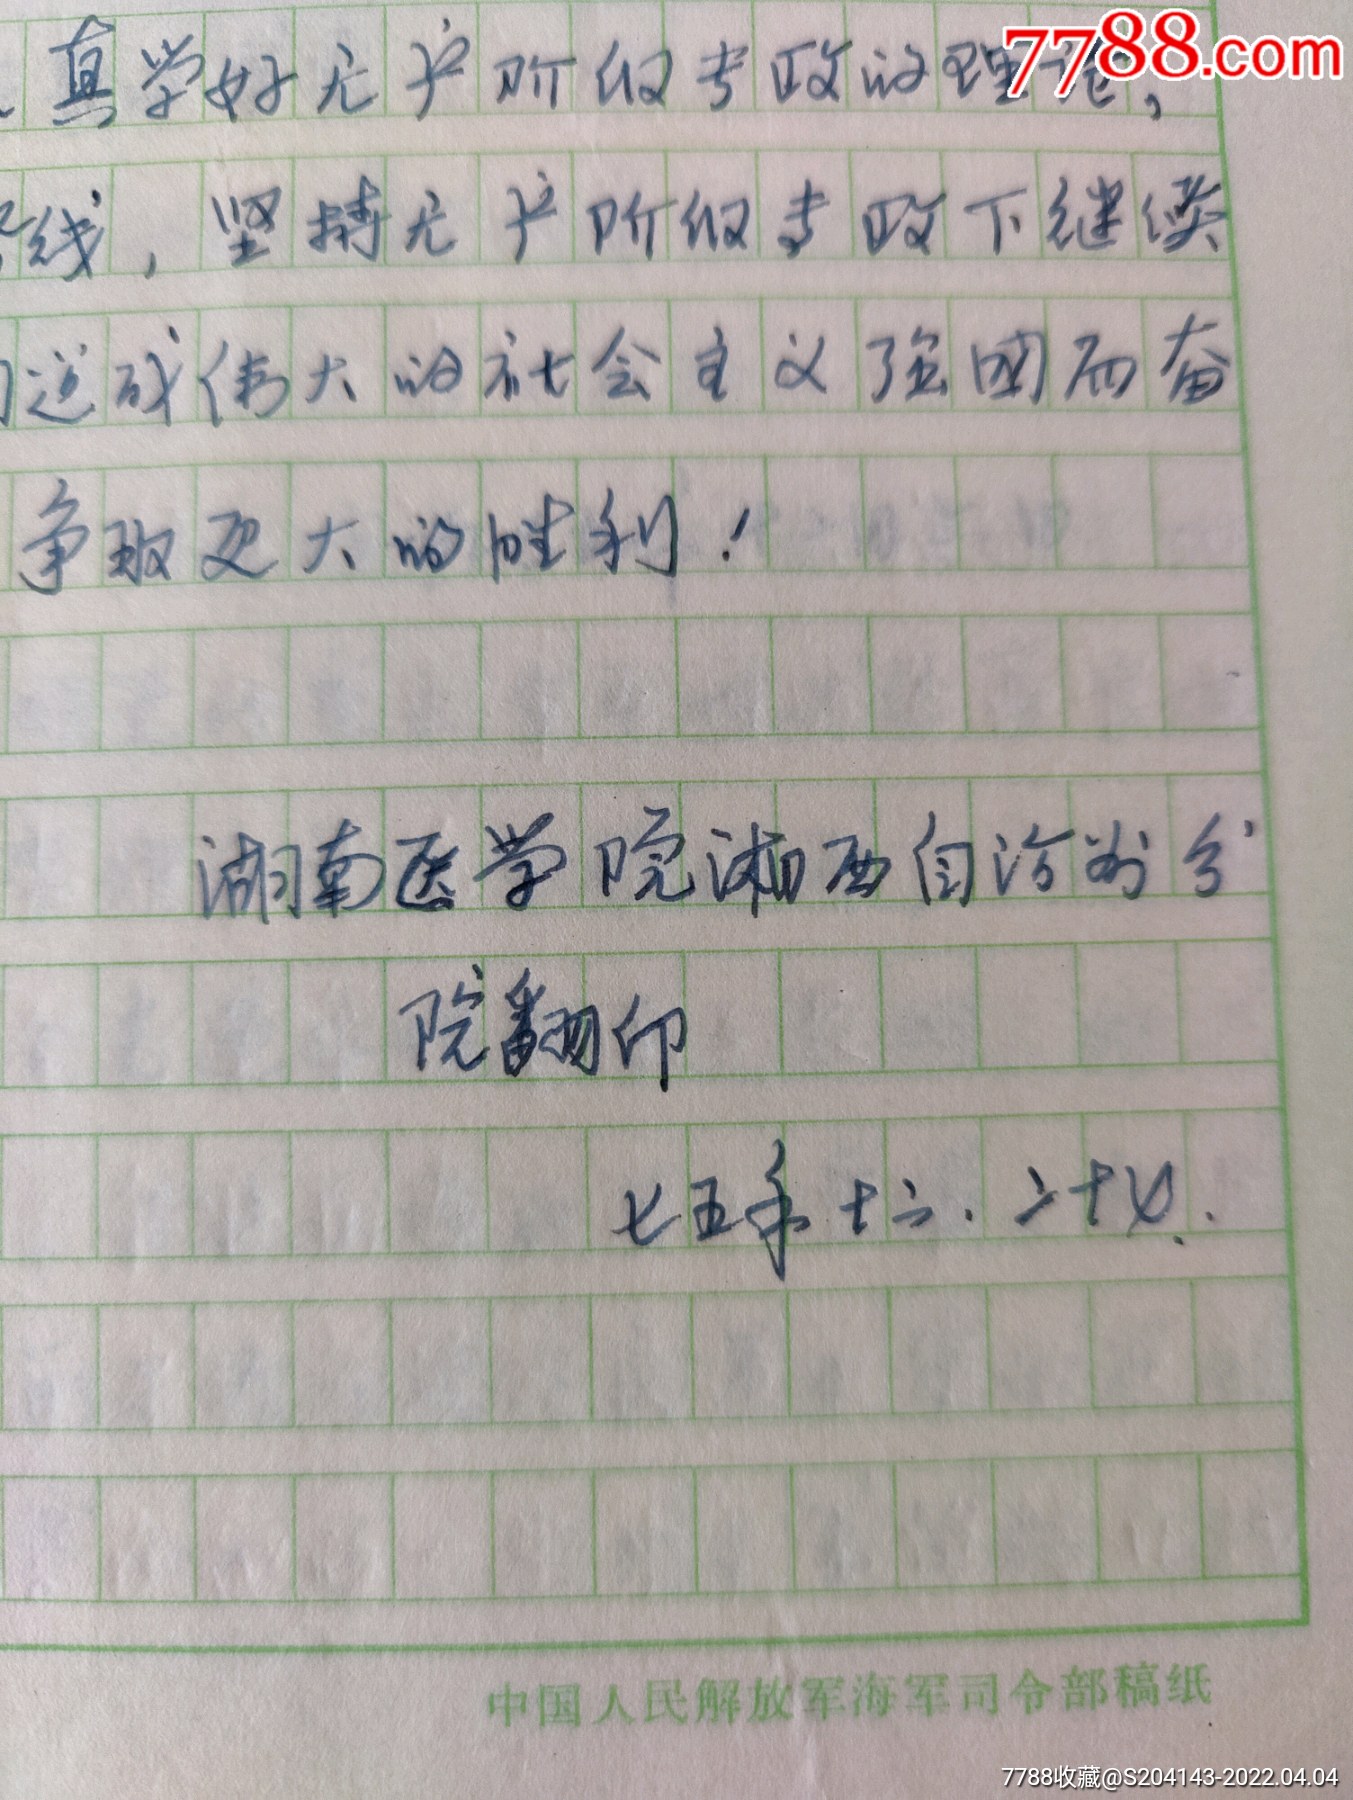 7788.com
真学好无产阶级专政的理论，
线，坚持无产阶级专政下继续
造成伟大的社会主义强国而奋
争取更大的胜利！
湖南医学院湘西自治州分
院翻印
七五年十六．二十
中国人民解放军海军司令部稿纸
7788收藏@S204143-2022.04.04